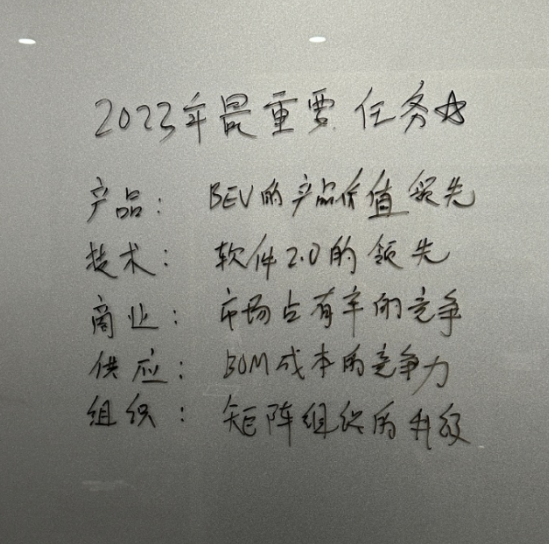 2023年最重要任务☆
产品：BEV的产品价值领先
技术：软件2.0的领先
商业：市场占有率的竞争
供应：BOM成本的竞争力
组织：矩阵组织的升级